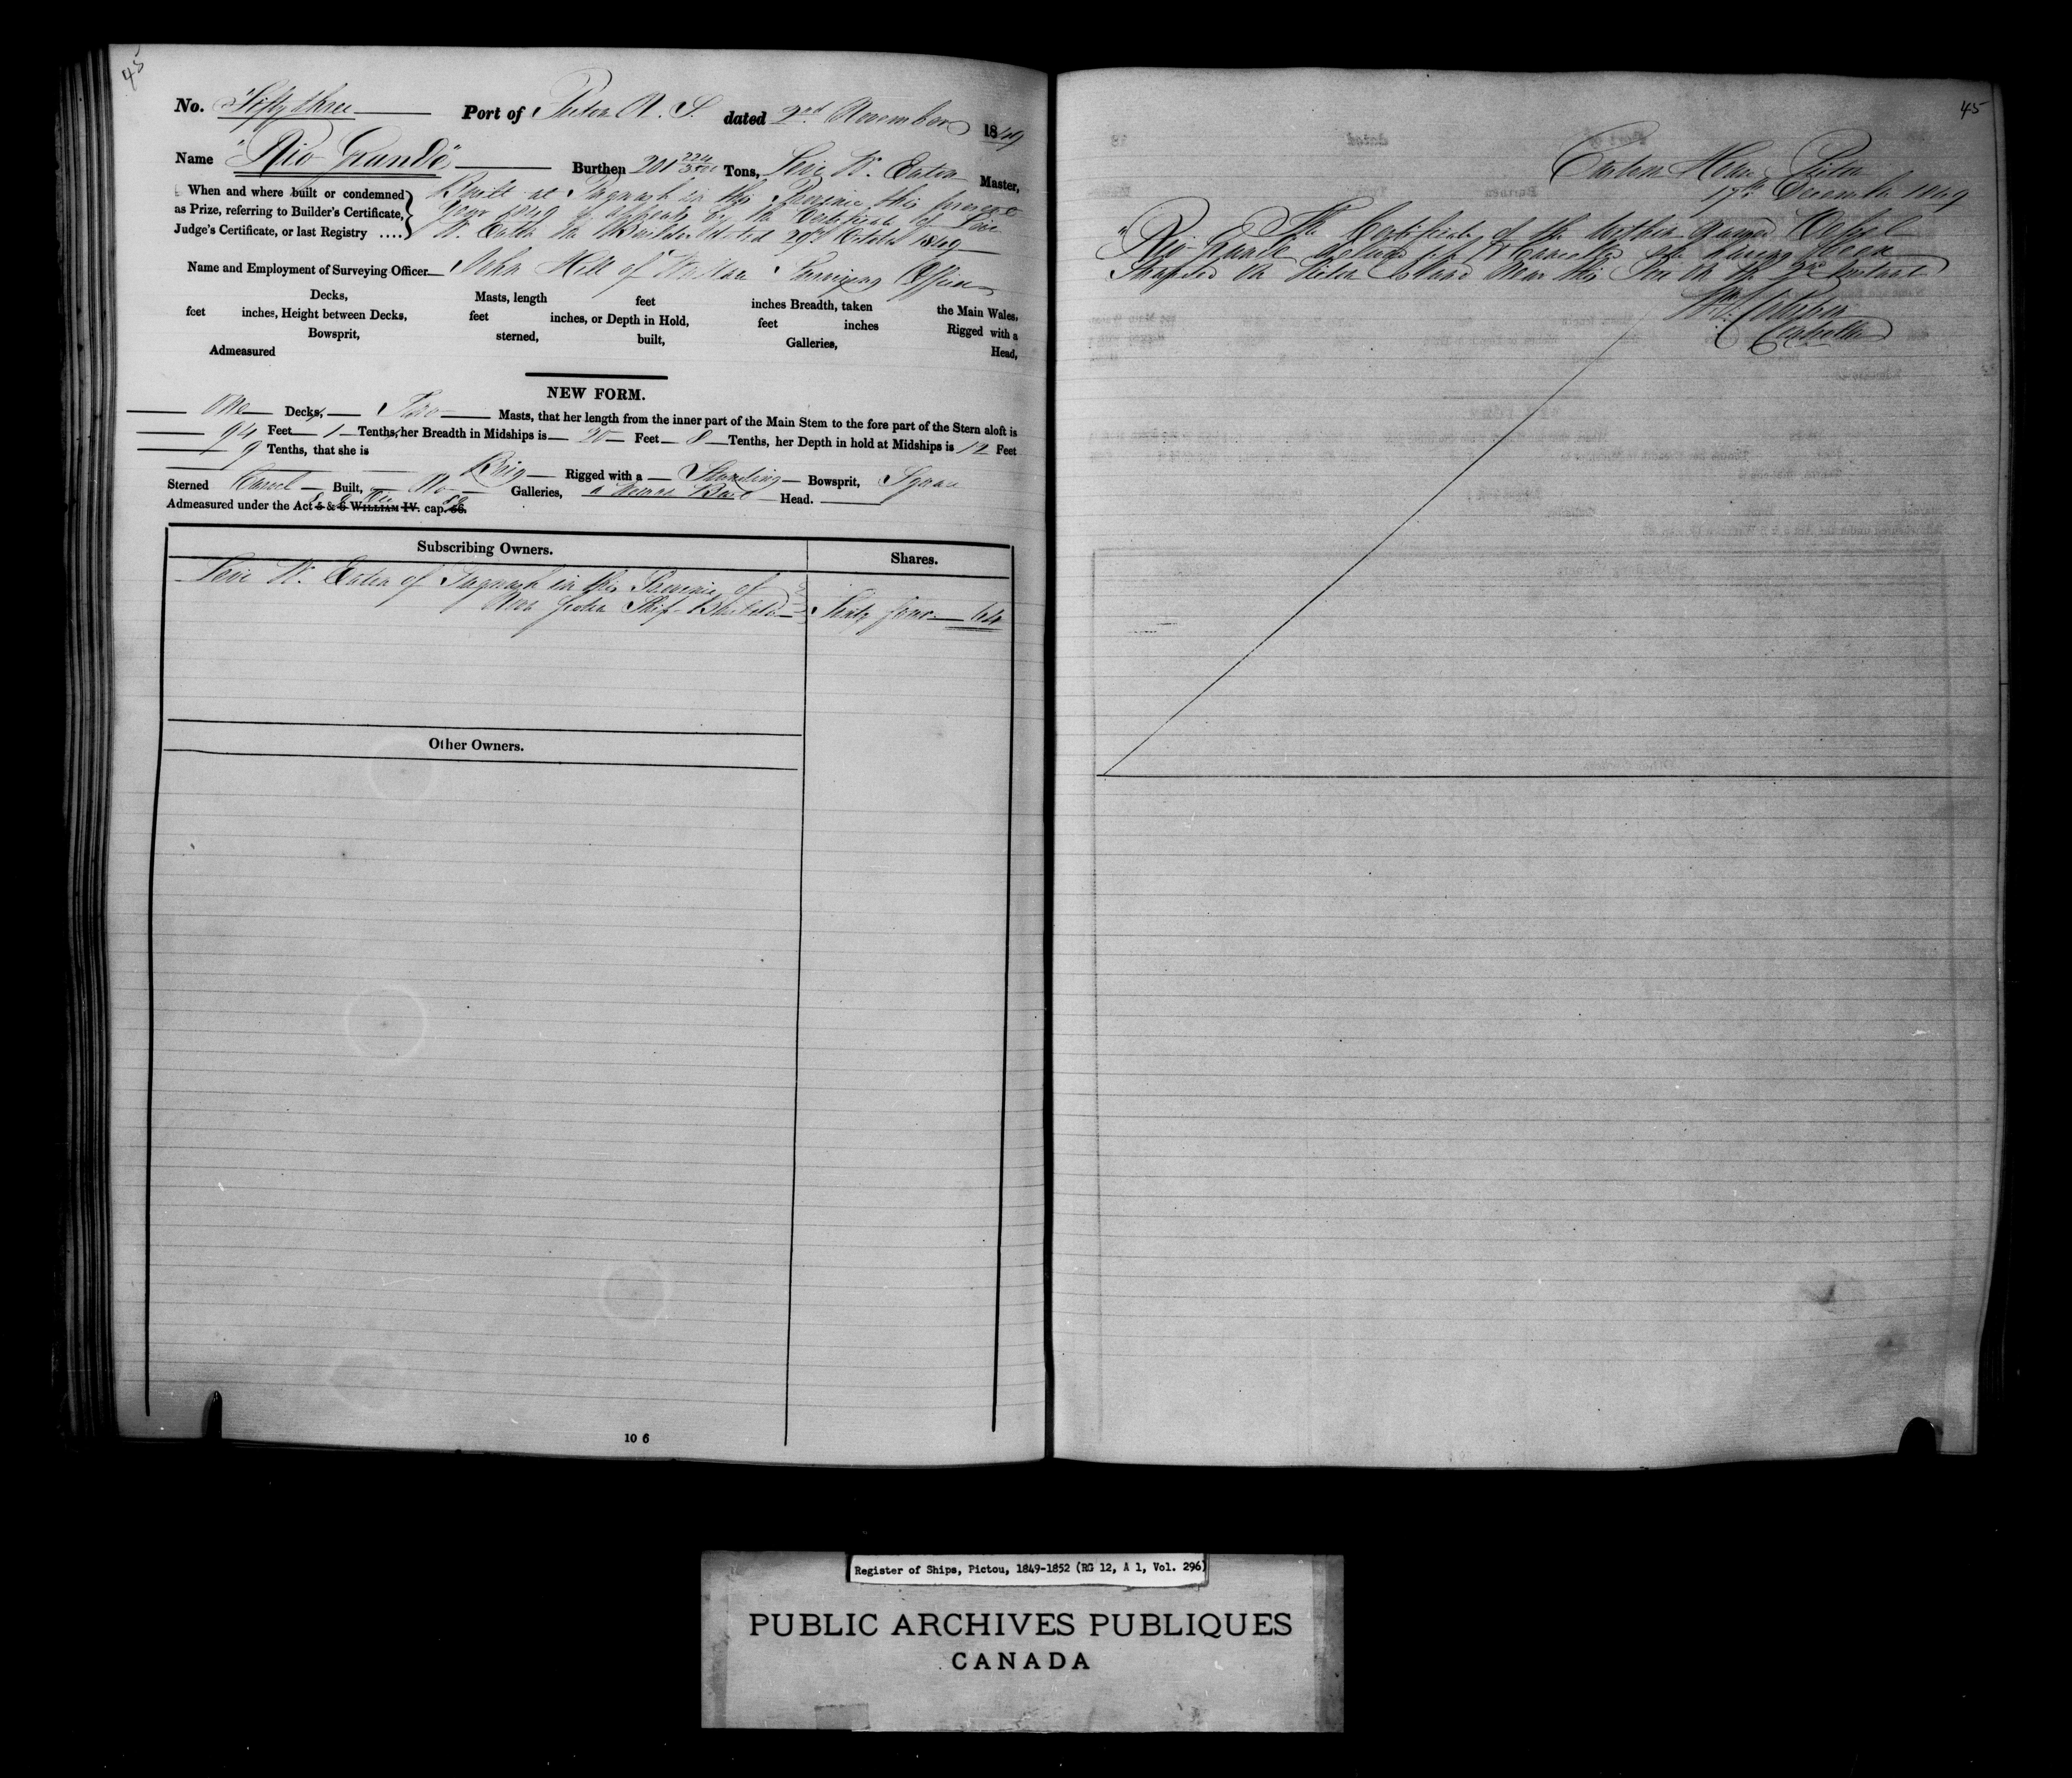 45
No. Fifty three Port of Pictou N. S. dated 2nd November 1849
Name "Rio Grande" Burthen 201 224/3500 Tons, Levi W. Eaton Master,
When and where built or condemned
as Prize, referring to Builder's Certificate,
Judge's Certificate, or last Registry ....
Built at Pugwash in this Province this present
year 1849 as appears by the Certificate of Levi
W. Eaton the Builder dated 29th October 1849
Name and Employment of Surveying Officer John Hill of Wallace Surveying Officer
Decks, Masts, length feet inches Breadth, taken the Main Wales,
feet inches, Height between Decks, feet inches, or Depth in Hold, feet inches Rigged with a
Bowsprit, sterned, built, Galleries, Head,
Admeasured
NEW FORM.
One Decks, Two Masts, that her length from the inner part of the Main Stem to the fore part of the Stern aloft is
94 Feet 1 Tenths, her Breadth in Midships is 20 Feet 8 Tenths, her Depth in hold at Midships is 12 Feet
9 Tenths, that she is Brig Rigged with a Standing Bowsprit, Square
Sterned Carvel Built, No Galleries, a Woman Bust Head.
Admeasured under the Act 5 & 6 WILLIAM IV. cap. 56.
Subscribing Owners. Shares.
Levi W. Eaton of Pugwash in this Province of
Nova Scotia Ship-Builder Sixty four 64
Other Owners.
10 6
45
Custom House Pictou
17th December 1849
The Certificate of the within named Vessel
"Rio Grande" delivered up & Cancelled she having been
Stranded on Pictou Island near this Port on the 2nd Instant
Controller
Register of Ships, Pictou, 1849-1852 (RG 12, A 1, Vol. 296)
PUBLIC ARCHIVES PUBLIQUES
CANADA